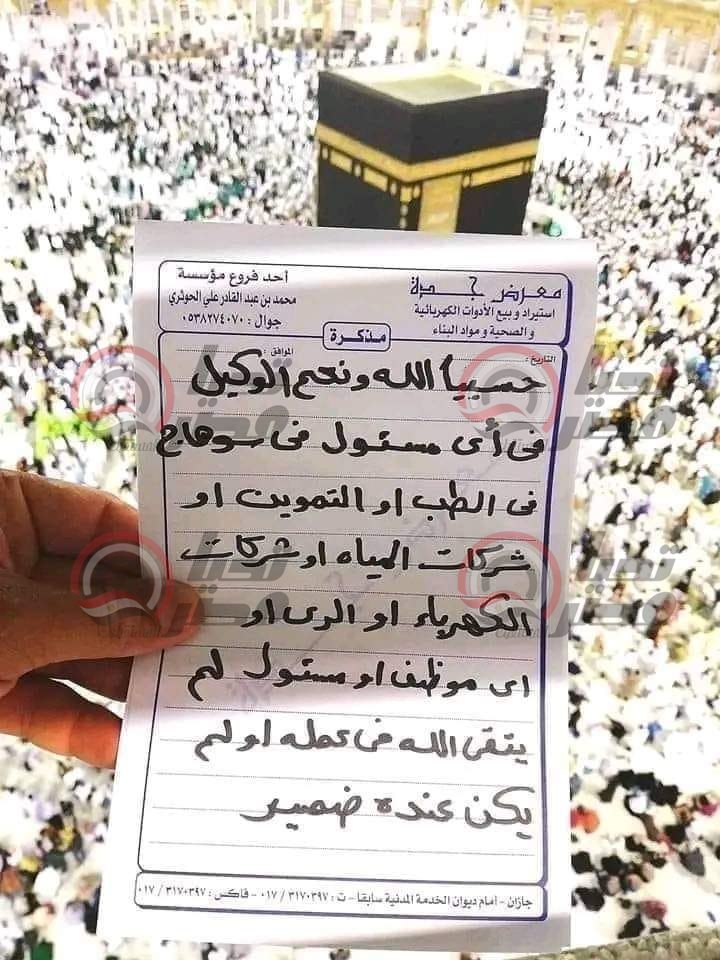 معرض جدة
استيراد وبيع الأدوات الكهربائية
والصحية ومواد البناء
أحد فروع مؤسسة
محمد بن عبد القادر علي الحوثري
جوال : ٠٥٣٨٢٧٤٠٧٠
مذكرة
التاريخ : الموافق :
حسبيا الله ونعم الوكيل
فى أى مسئول فى سوهاج
فى الطب او التموين او
شركات المياه او شركات
الكهرباء او الرى او
اى موظف او مسئول لم
يتقى الله فى عمله او لم
يكن عنده ضمير
جازان - أمام ديوان الخدمة المدنية سابقا - ت : ٣١٧٠٣٩٧ / ٠١٧ - فاكس : ٣١٧٠٣٩٧ / ٠١٧
تحيا مصر
تحيا مصر
تحيا مصر
تحيا مصر